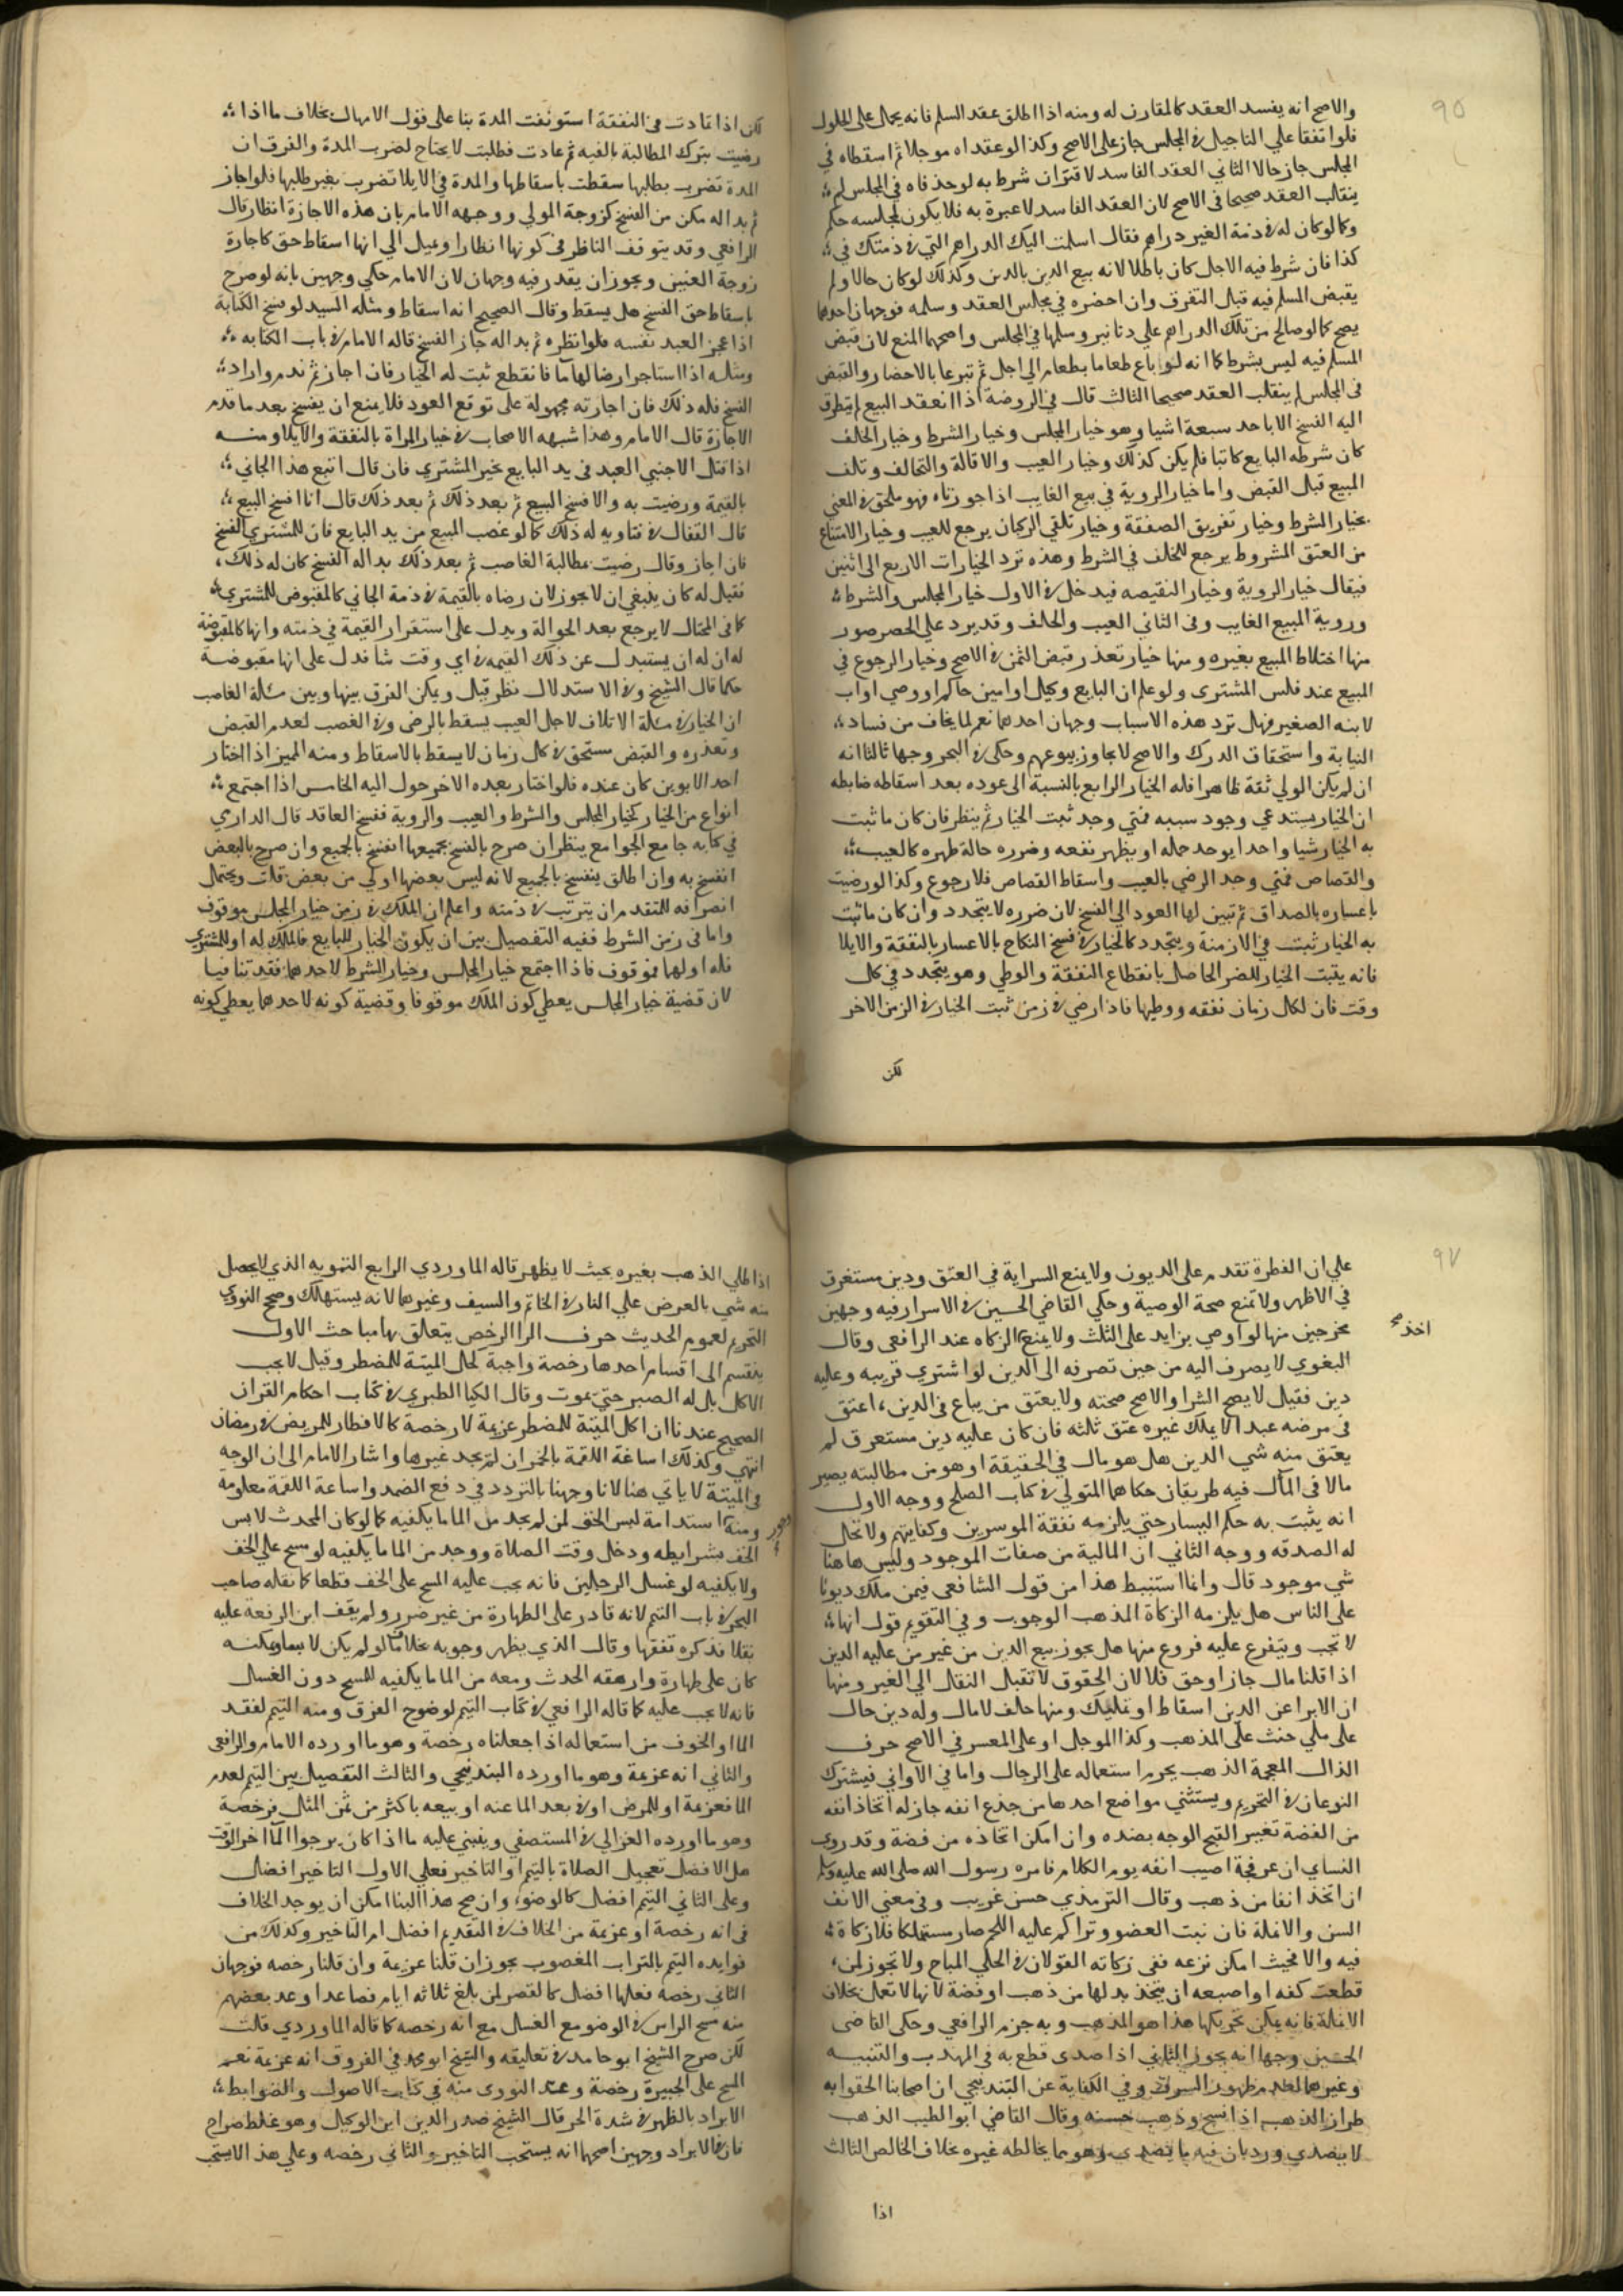 ٩٥
والاصح انه يفسد العقد كالمقارن له ومنه اذا اطلق عقد السلم فانه يحمل على الحلول
فلو اتفقا علي التاجيل في المجلس جاز على الاصح وكذا لو عقداه موجلا ثم اسقطاه في
المجلس جاز حالا الثاني العقد الفاسد لاقتران شرط به لو حذفاه في المجلس لم
ينقلب العقد صحيحا في الاصح لان العقد الفاسد لا عبرة به فلا يكون لمجلسه حكم
وكما لو كان له في ذمة الغير دراهم فقال اسلمت اليك الدراهم التي في ذمتك في
كذا فان شرط فيه الاجل كان باطلا لانه بيع الدين بالدين وكذلك لو كان حالا ولم
يقبض المسلم فيه قبل التفرق وان احضره في مجلس العقد وسلمه فوجهان احدهما
يصح كما لو صالح من تلك الدراهم علي دنانير وسلمها في المجلس واصحهما المنع لان قبض
المسلم فيه ليس بشرط كما انه لو باع طعاما بطعام الي اجل ثم تبرعا بالاحضار والقبض
في المجلس لم ينقلب العقد صحيحا الثالث قال في الروضة اذا انعقد البيع لم يتطرق
اليه الفسخ الا باحد سبعة اشيا وهو خيار المجلس وخيار الشرط وخيار الخلف
كان شرطه البايع كاتبا فلم يكن كذلك وخيار العيب والاقالة والتحالف وتلف
المبيع قبل القبض واما خيار الروية في بيع الغايب اذا جوزناه فهو ملحق في المعني
بخيار الشرط وخيار تفريق الصفقة وخيار تلقي الركبان يرجع للعيب وخيار الامتناع
من العتق المشروط يرجع للخلف في الشرط وهذه ترد الخيارات الاربع الى اثنين
فيقال خيار الروية وخيار النقيصه فيدخل في الاول خيار المجلس والشرط
وروية المبيع الغايب وفى الثاني العيب والخلف وقد يرد علي الحصر صور
منها اختلاط المبيع بغيره ومنها خيار تعذر قبض الثمن في الاصح وخيار الرجوع في
المبيع عند فلس المشترى ولو علم ان البايع وكيل او امين حاكم او وصي او اب
لابنه الصغير فهل ترد هذه الاسباب وجهان احدهما نعم لما يخاف من فساد
النيابة واستحقاق الدرك والاصح لا يجاوز بيوعهم وحكى في البحر وجها ثالثا انه
ان لم يكن الولي ثقة ظاهرا فله الخيار الرابع بالنسبة الى عوده بعد اسقاطه ضابطه
ان الخيار يستدعي وجود سببه فمتي وجد ثبت الخيار ثم ينظر فان كان ما ثبت
به الخيار شيا واحدا يوجد جمله او يظهر نفعه وضرره حالة ظهره كالعيب
والقصاص فمتي وجد الرضي بالعيب واسقاط القصاص فلا رجوع وكذا لو رضيت
باعساره بالصداق ثم تبين لها العود الي الفسخ لان ضرره لا يتجدد وان كان ما ثبت
به الخيار ثبت في الازمنة ويتجدد كالخيار في فسخ النكاح بالاعسار بالنفقة والايلا
فانه يثبت الخيار للضر الحاصل بانقطاع النفقة والوطي وهو يتجدد في كل
وقت فان لكل زمان نفقه ووطيها فاذا رضي في زمن ثبت الخيار في الزمن الاخر
لكن
لكن اذا عادت في النفقة استونفت المدة بنا على قول الامهال بخلاف ما اذا
رضيت بترك المطالبة بالفيه ثم عادت فطلبت لا يحتاج لضرب المدة والفرق ان
المدة تضرب بطلبها سقطت باسقاطها والمدة في الايلا تضرب بغير طلبها فلو اجاز
ثم بدا له مكن من الفسخ كزوجة المولي ووجهه الامام بان هذه الاجازة انظار قال
الرافعي وقد يتوقف الناظر في كونها انظارا ويميل الي انها اسقاط حق كاجازة
زوجة العنين ويجوز ان يقدر فيه وجهان لان الامام حكي وجهين بانه لو صرح
باسقاط حق الفسخ هل يسقط وقال الصحيح انه اسقاط ومثله السيد لو فسخ الكتابة
اذا عجز العبد نفسه فلو انظره ثم بدا له جاز الفسخ قاله الامام في باب الكتابه
ومثله اذا استاجر ارضا لها ما فانقطع ثبت له الخيار فان اجاز ثم ندم واراد
الفسخ فله ذلك فان اجازته مجهولة على توقع العود فلا يمنع ان يفسخ بعد ما قدم
الاجازة قال الامام وهذا شبهه الاصحاب في خيار المراة بالنفقة والايلا ومنه
اذا قتل الاجنبي العبد في يد البايع يخير المشتري فان قال اتبع هذا الجاني
بالقيمة ورضيت به والا فسخ البيع ثم بعد ذلك ثم بعد ذلك قال انا افسخ البيع
قال القفال في فتاويه له ذلك كما لو غصب المبيع من يد البايع فان للمشتري الفسخ
فان اجاز وقال رضيت بمطالبة الغاصب ثم بعد ذلك بدا له الفسخ كان له ذلك
فقيل له كان ينبغي ان لا يجوز لان رضاه بالقيمة في ذمة الجاني كالمقبوض للمشتري
كما في المحتال لا يرجع بعد الحوالة ويدل على استقرار القيمة في ذمته وانها كالمقبوضة
له ان له ان يستبدل عن ذلك القيمه في اي وقت شا فدل على انها مقبوضة
حكما قال الشيخ وفي الاستدلال نظر قيل ويمكن الفرق بينها وبين مسئلة الغاصب
ان الخيار في مسئلة الاتلاف لاجل العيب يسقط بالرضى وفي الغصب لعدم القبض
وتعذره والقبض مستحق في كل زمان لا يسقط بالاسقاط ومنه المميز اذا اختار
احد الابوين كان عنده فلو اختار بعده الاخر حول اليه الخامس اذا اجتمع
انواع من الخيار كخيار المجلس والشرط والعيب والروية ففسخ العاقد قال الدارمي
في كتابه جامع الجوامع ينظر ان صرح بالفسخ بجميعها انفسخ بالجميع وان صرح بالبعض
انفسخ به وان اطلق ينفسخ بالجميع لانه ليس بعضها اولي من بعض قلت ويحتمل
انصرافه للمتقدم ان يترتب في ذمته واعلم ان الملك في زمن خيار المجلس موقوف
واما في زمن الشرط ففيه التفصيل بين ان يكون الخيار للبايع فالملك له او للمشتري
فله او لهما فموقوف فاذا اجتمع خيار المجلس وخيار الشرط لاحدهما فقد تنافيا
لان قضية خيار المجلس يعطي كون الملك موقوفا وقضية كونه لاحدهما يعطي كونه
٩٧
علي ان الفطرة تقدم على الديون ولا يمنع السراية في العتق ودين مستغرق
في الاظهر ولا تمنع صحة الوصية وحكي القاضي الحسين في الاسرار فيه وجهين
مخرجين منها لو اوصي بزايد على الثلث ولا يمنع الزكاه عند الرافعى وقال
اخذ صح
البغوي لا يصرف اليه من حين تصرفه الى الدين لو اشتري قريبه وعليه
دين فقيل لا يصح الشرا والاصح صحته ولا يعتق من يباع في الدين، اعتق
في مرضه عبدا لا يملك غيره عتق ثلثه فان كان عليه دين مستغرق لم
يعتق منه شي الدين هل هو مال في الحقيقة او هو من مطالبته يصير
مالا في المآل فيه طريقان حكاهما المتولي في كتاب الصلح ووجه الاول
انه يثبت به حكم اليسار حتي يلزمه نفقة الموسرين وكفايتهم ولا تحل
له الصدقه ووجه الثاني ان المالية من صفات الموجود وليس هاهنا
شي موجود قال وانما استنبط هذا من قول الشافعى فيمن ملك ديونا
على الناس هل يلزمه الزكاة المذهب الوجوب وفي القديم قول انها
لا تجب ويتفرع عليه فروع منها هل يجوز بيع الدين من غير من عليه الدين
اذا قلنا مال جاز او حق فلا لان الحقوق لا تقبل النقل الي الغير ومنها
ان الابرا عن الدين اسقاط او تمليك ومنها حلف لا مال وله دين حال
على ملي حنث على المذهب وكذا الموجل او على المعسر في الاصح حرف
الذال المعجمة الذهب يحرم استعماله على الرجال واما في الاواني فيشترك
النوعان في التحريم ويستثني مواضع احدها من جذع انفه جاز له اتخاذ انفه
من الفضة تغيير القبح الوجه بضده وان امكن اتخاذه من فضة وقد روى
النساي ان عرفجة اصيب انفه يوم الكلام فامره رسول الله صلى الله عليه وسلم
ان اتخذ انفا من ذهب وقال الترمذي حسن غريب وفي معني الانف
السن والانملة فان نبت العضو وتراكم عليه اللحم صار مستهلكا فلا زكاة
فيه والا فحيث امكن نزعه ففى زكاته القولان في الحلي المباح ولا يجوز لمن
قطعت كفه او اصبعه ان يتخذ بدلها من ذهب او فضة لانها لا تعمل بخلاف
الانملة فانه يمكن تحريكها هذا هو المذهب وبه جزم الرافعي وحكى القاضى
الحسين وجها انه يجوز الثاني اذا صدى قطع به في المهذب والتنبيه
وغيرهما لعدم ظهور السرف وفي الكفاية عن البندنيجي ان اصحابنا الحقوا به
طراز الذهب اذا نسج وذهب حسنه وقال القاضي ابو الطيب الذهب
لا يصدي ورد بان فيه ما يصدي وهو ما يخالطه غيره بخلاف الخالص الثالث
اذا
اذا طلي الذهب بغيره بحيث لا يظهر قاله الماوردي الرابع التمويه الذي لا يحصل
منه شي بالعرض علي النار في الخاتم والسيف وغيرهما لانه يستهلك وصحح النووي
التحريم لعموم الحديث حرف الرا الرخص يتعلق بها مباحث الاول
ينقسم الى اقسام احدها رخصة واجبة كحل الميتة للمضطر وقيل لا يجب
الاكل بل له الصبر حتي يموت وقال الكيا الطبري في كتاب احكام القران
الصحيح عندنا ان اكل الميتة للمضطر عزيمة لا رخصة كالافطار للمريض في رمضان
انتهي وكذلك اساغة اللقمة بالخمر ان لم يجد غيرها واشار الامام الى ان الوجه
في الميتة لا ياتي هنا لانا وجهنا بالتردد في دفع الضمد واساغة اللقمة معلومة
ومنه استدامة لبس الخف لمن لم يجد من الما ما يكفيه كما لو كان المحدث لابس
الخف بشرايطه ودخل وقت الصلاة ووجد من الما ما يكفيه لو مسح علي الخف
ولا يكفيه لو غسل الرجلين فانه يجب عليه المسح على الخف قطعا كما نقله صاحب
البحر في باب التيمم لانه قادر على الطهارة من غير ضرر ولم يقف ابن الرفعة عليه
نقلا فذكره تفقها وقال الذي يظهر وجوبه بخلاف ما لو لم يكن لابسا ويمكنه
كان على طهارة وارهقه الحدث ومعه من الما ما يكفيه للمسح دون الغسل
فانه لا يجب عليه كما قاله الرافعي في كتاب التيمم لوضوح الفرق ومنه التيمم لفقد
الما او الخوف من استعماله اذا جعلناه رخصة وهو ما اورده الامام والرافعى
والثاني انه عزيمة وهو ما اورده البندنيجي والثالث التفصيل بين التيمم لعدم
الما فعزيمة او للمرض او في بعد الما عنه او بيعه باكثر من ثمن المثل فرخصة
وهو ما اورده الغزالي في المستصفي وينبني عليه ما اذا كان يرجوا الما اخر الوقت
هل الافضل تعجيل الصلاة بالتيمم او التاخير فعلي الاول التاخير افضل
وعلى الثاني التيمم افضل كالوضوء وان صح هذا البنا امكن ان يوجد الخلاف
في انه رخصة او عزيمة من الخلاف في التقديم افضل ام التاخير وكذلك من
فوايده التيمم بالتراب المغصوب يجوز ان قلنا عزيمة وان قلنا رخصه فوجهان
الثاني رخصة فعلها افضل كالقصر لمن بلغ ثلاثه ايام فصاعدا وعد بعضهم
منه مسح الراس في الوضو مع الغسل مع انه رخصه كما قاله الماوردي قلت
لكن صرح الشيخ ابو حامد في تعليقه والشيخ ابو محمد في الفروق انه عزيمة نعم
المسح على الجبيرة رخصة وعند النووى منه في كتاب الاصول والضوابط
الابراد بالظهر في شدة الحر قال الشيخ صدر الدين ابن الوكيل وهو غلط صراح
فان في الابراد وجهين اصحهما انه يستحب التاخير والثاني رخصه وعلي هذا لا يستحب